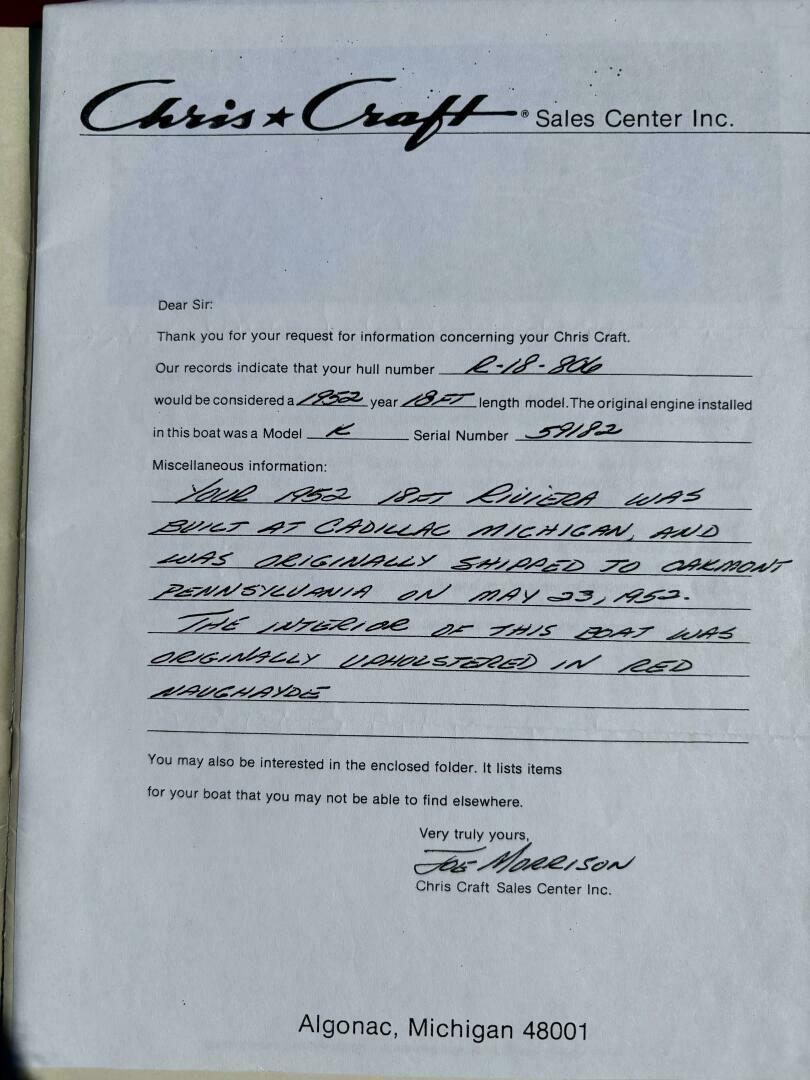 Chris★Craft® Sales Center Inc.
Dear Sir:
Thank you for your request for information concerning your Chris Craft.
Our records indicate that your hull number R-18-806
would be considered a 1952 year 18FT length model. The original engine installed
in this boat was a Model K Serial Number 59182
Miscellaneous information:
YOUR 1952 18FT RIVIERA WAS
BUILT AT CADILLAC MICHIGAN, AND
WAS ORIGINALLY SHIPPED TO OAKMONT
PENNSYLVANIA ON MAY 23, 1952.
THE INTERIOR OF THIS BOAT WAS
ORIGINALLY UPHOLSTERED IN RED
NAUGHAYDE
You may also be interested in the enclosed folder. It lists items
for your boat that you may not be able to find elsewhere.
Very truly yours,
JOE MORRISON
Chris Craft Sales Center Inc.
Algonac, Michigan 48001